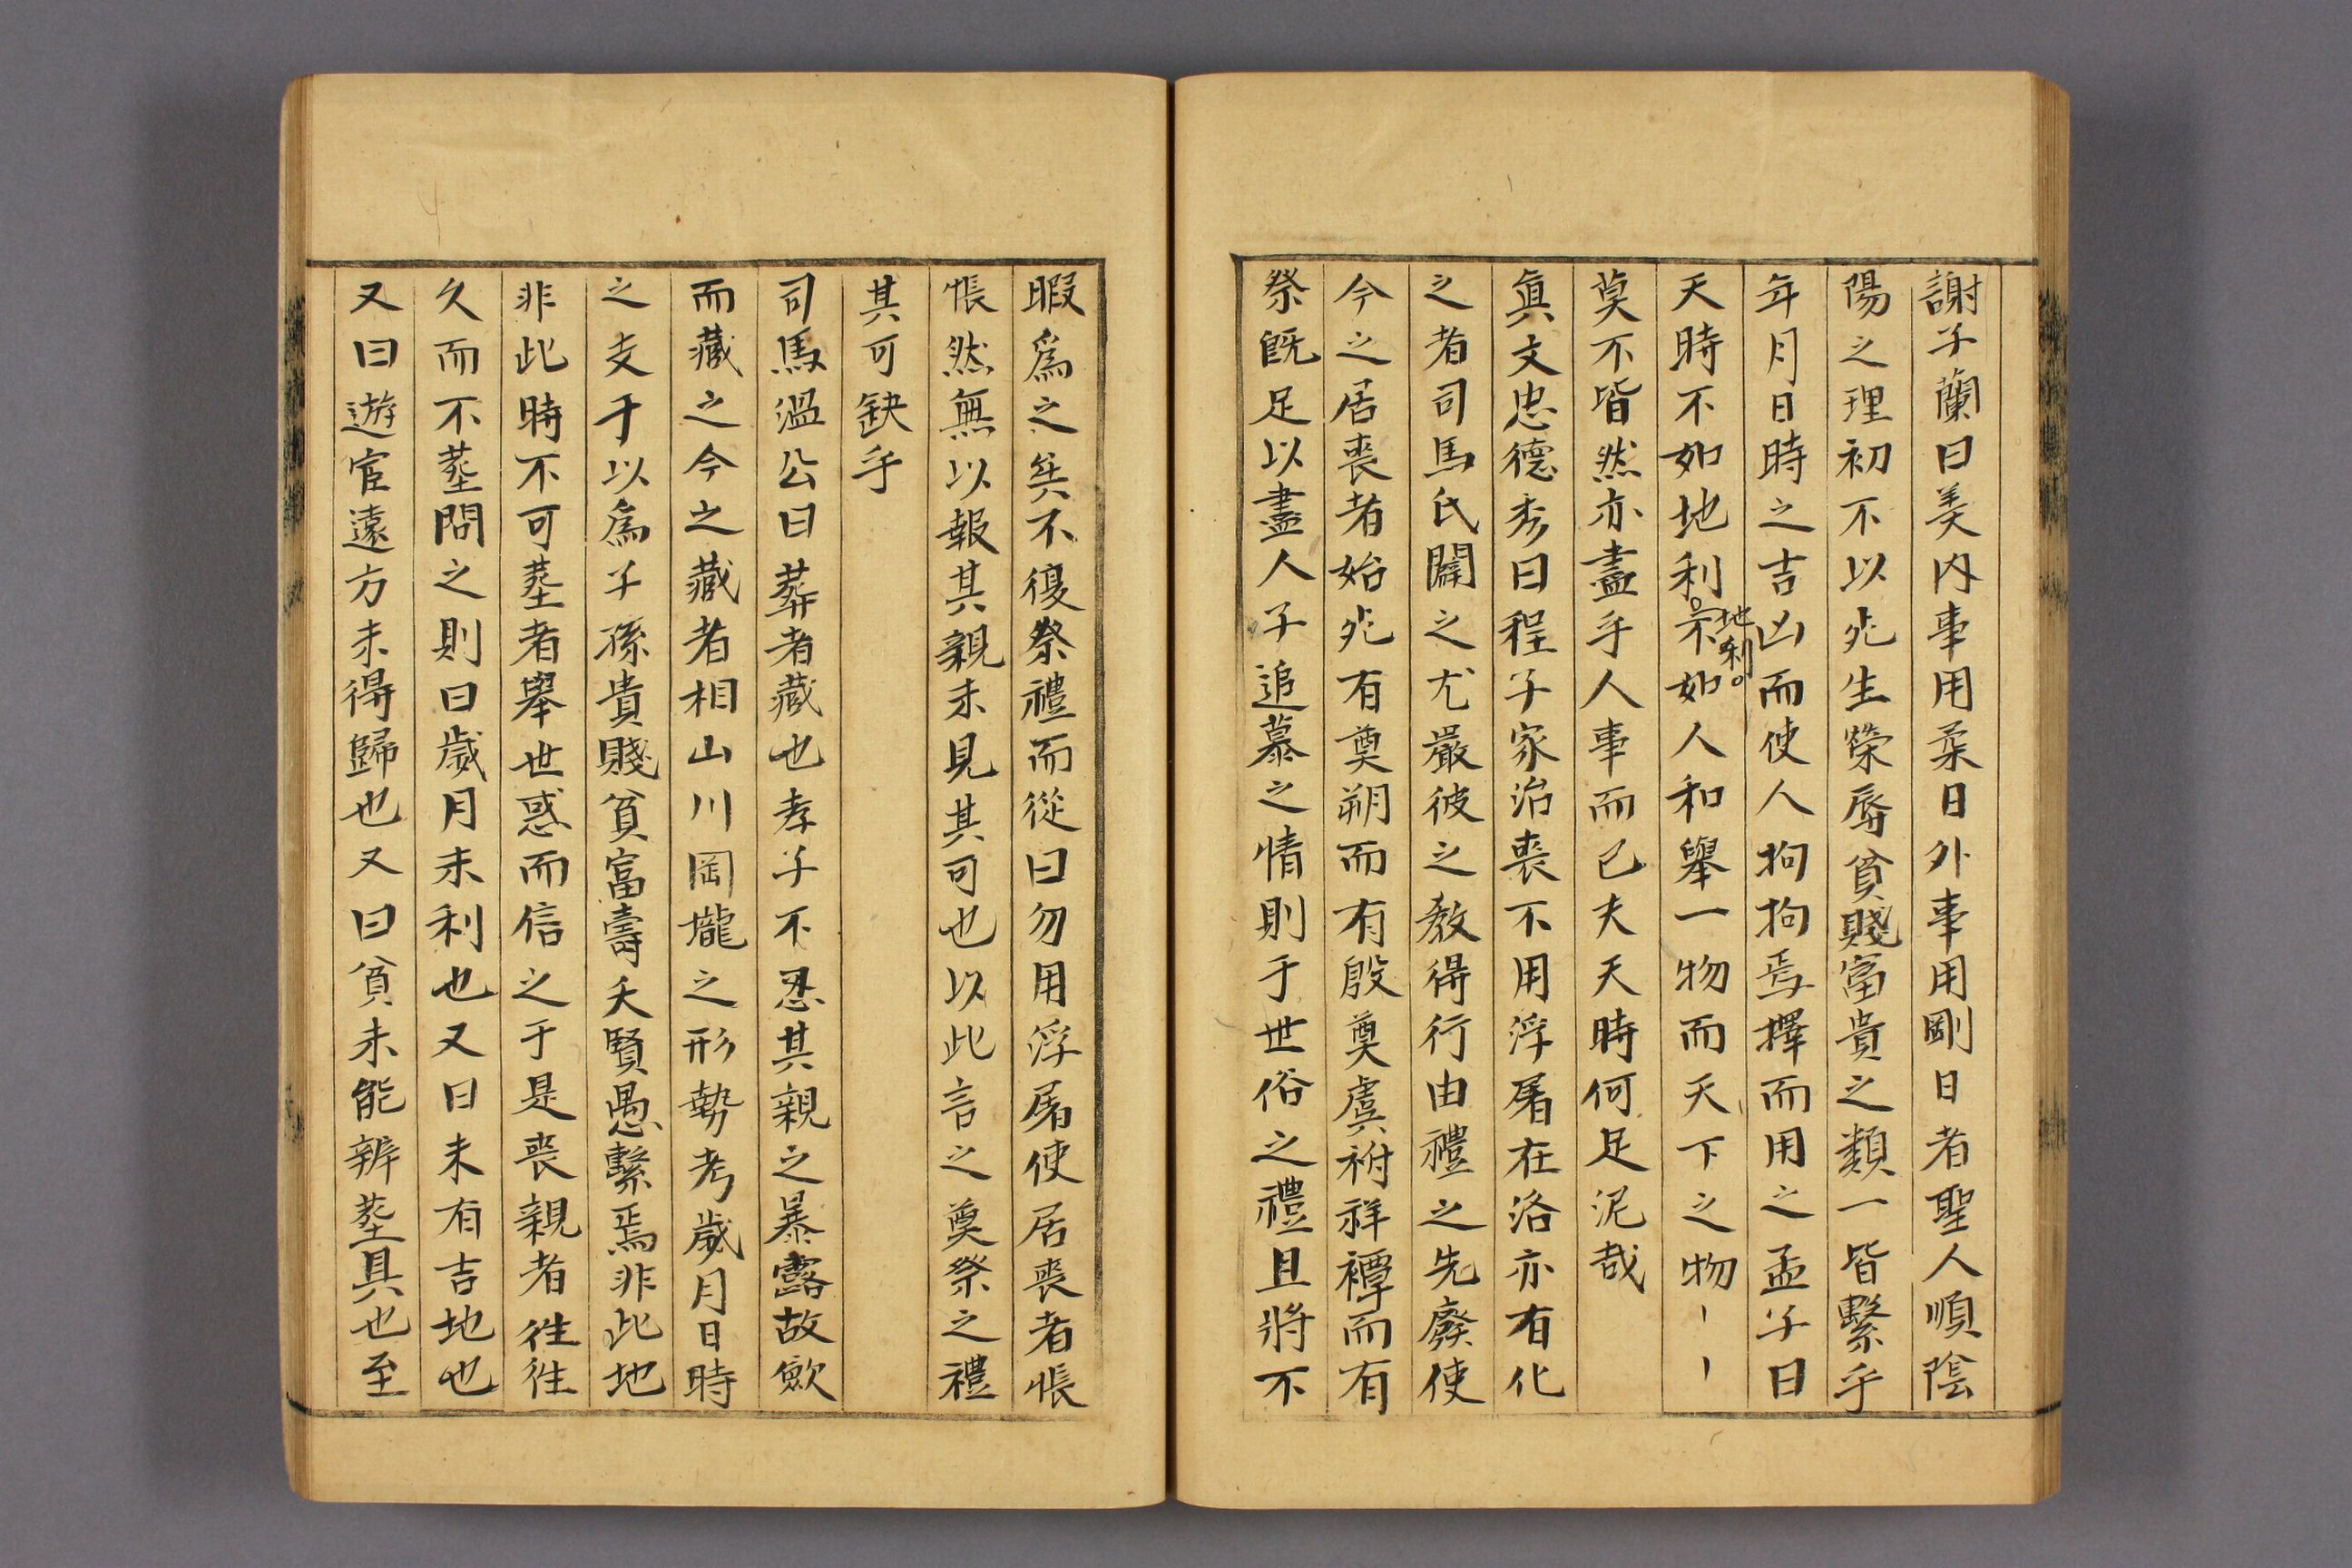 謝子蘭曰美內事用柔日外事用剛日者聖人順陰
陽之理初不以死生榮辱貧賤富貴之類一皆繫乎
年月日時之吉凶而使人拘拘焉擇而用之孟子曰
天時不如地利。地利。不如人和舉一物而天下之物
莫不皆然亦盡乎人事而已夫天時何足泥哉
眞文忠德秀曰程子家治喪不用浮屠在洛亦有化
之者司馬氏闢之尤嚴彼之教得行由禮之先廢使
今之居喪者始死有奠朔而有殷奠虞祔祥禫而有
祭旣足以盡人子追慕之情則于世俗之禮且將不
暇爲之矣不復祭禮而從曰勿用浮屠使居喪者悵
悵然無以報其親未見其可也以此言之奠祭之禮
其可缺乎
司馬溫公曰葬者藏也孝子不忍其親之暴露故歛
而藏之今之藏者相山川岡壠之形勢考歲月日時
之支干以爲子孫貴賤貧富壽夭賢愚繫焉非此地
非此時不可塟者舉世惑而信之于是喪親者徃徃
久而不塟問之則曰歲月未利也又曰未有吉地也
又曰遊宦遠方未得歸也又曰貧未能辨塟具也至